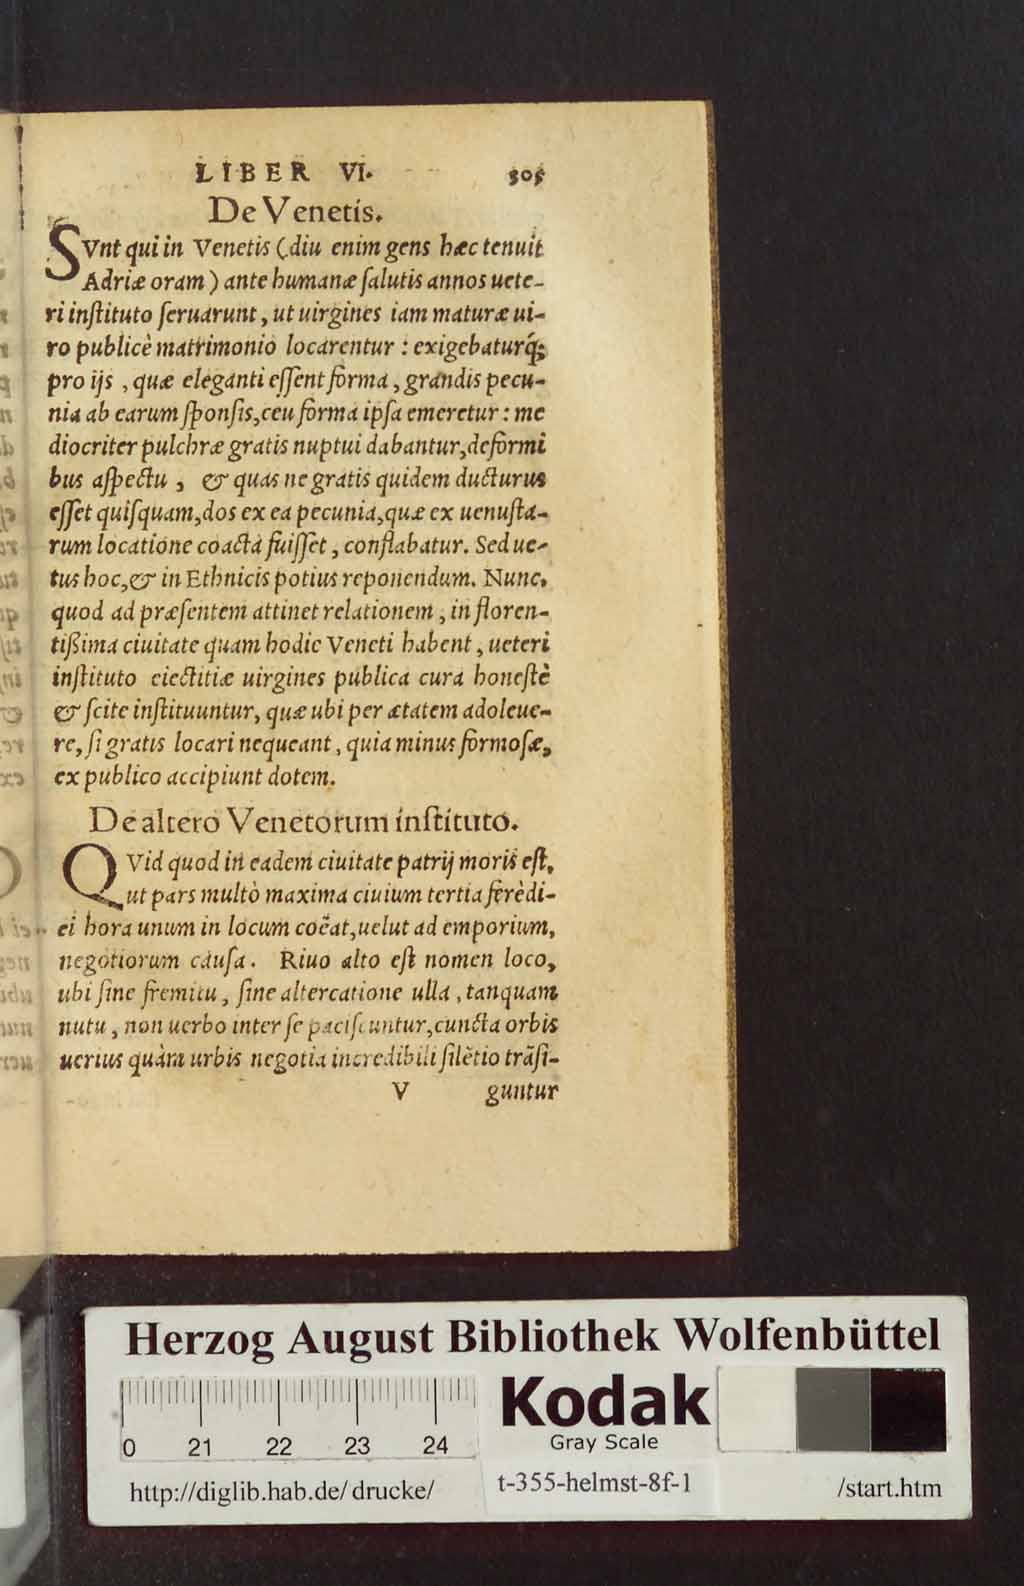 LIBER VI. 305
De Venetis.
SVnt qui in Venetis (diu enim gens hæc tenuit
Adriæ oram) ante humanæ ſalutis annos uete-
ri inſtituto ſeruarunt, ut uirgines iam maturæ ui-
ro publicè matrimonio locarentur: exigebaturq́;
pro ijs, quæ eleganti eſſent forma, grandis pecu-
nia ab earum ſponſis, ceu forma ipſa emeretur: me
diocriter pulchræ gratis nuptui dabantur, deformi
bus aſpectu, & quas ne gratis quidem ducturus
eſſet quiſquam, dos ex ea pecunia, quæ ex uenuſta-
rum locatione coacta fuiſſet, conflabatur. Sed ue-
tus hoc, & in Ethnicis potius reponendum. Nunc,
quod ad præſentem attinet relationem, in floren-
tißima ciuitate quam hodie Veneti habent, ueteri
inſtituto eiectitiæ uirgines publica cura honeſtè
& ſcite inſtituuntur, quæ ubi per ætatem adoleue-
re, ſi gratis locari nequeant, quia minus formoſæ,
ex publico accipiunt dotem.
De altero Venetorum inſtituto.
QVid quod in eadem ciuitate patrij moris eſt,
ut pars multò maxima ciuium tertia ferè di-
ei hora unum in locum coëat, uelut ad emporium,
negotiorum cauſa. Riuo alto eſt nomen loco,
ubi ſine fremitu, ſine altercatione ulla, tanquam
nutu, non uerbo inter ſe paciſcuntur, cuncta orbis
uerius quàm urbis negotia incredibili ſilẽtio trãſi-
V guntur
Herzog August Bibliothek Wolfenbüttel
0 21 22 23 24
Kodak
Gray Scale
http://diglib.hab.de/drucke/ t-355-helmst-8f-1 /start.htm